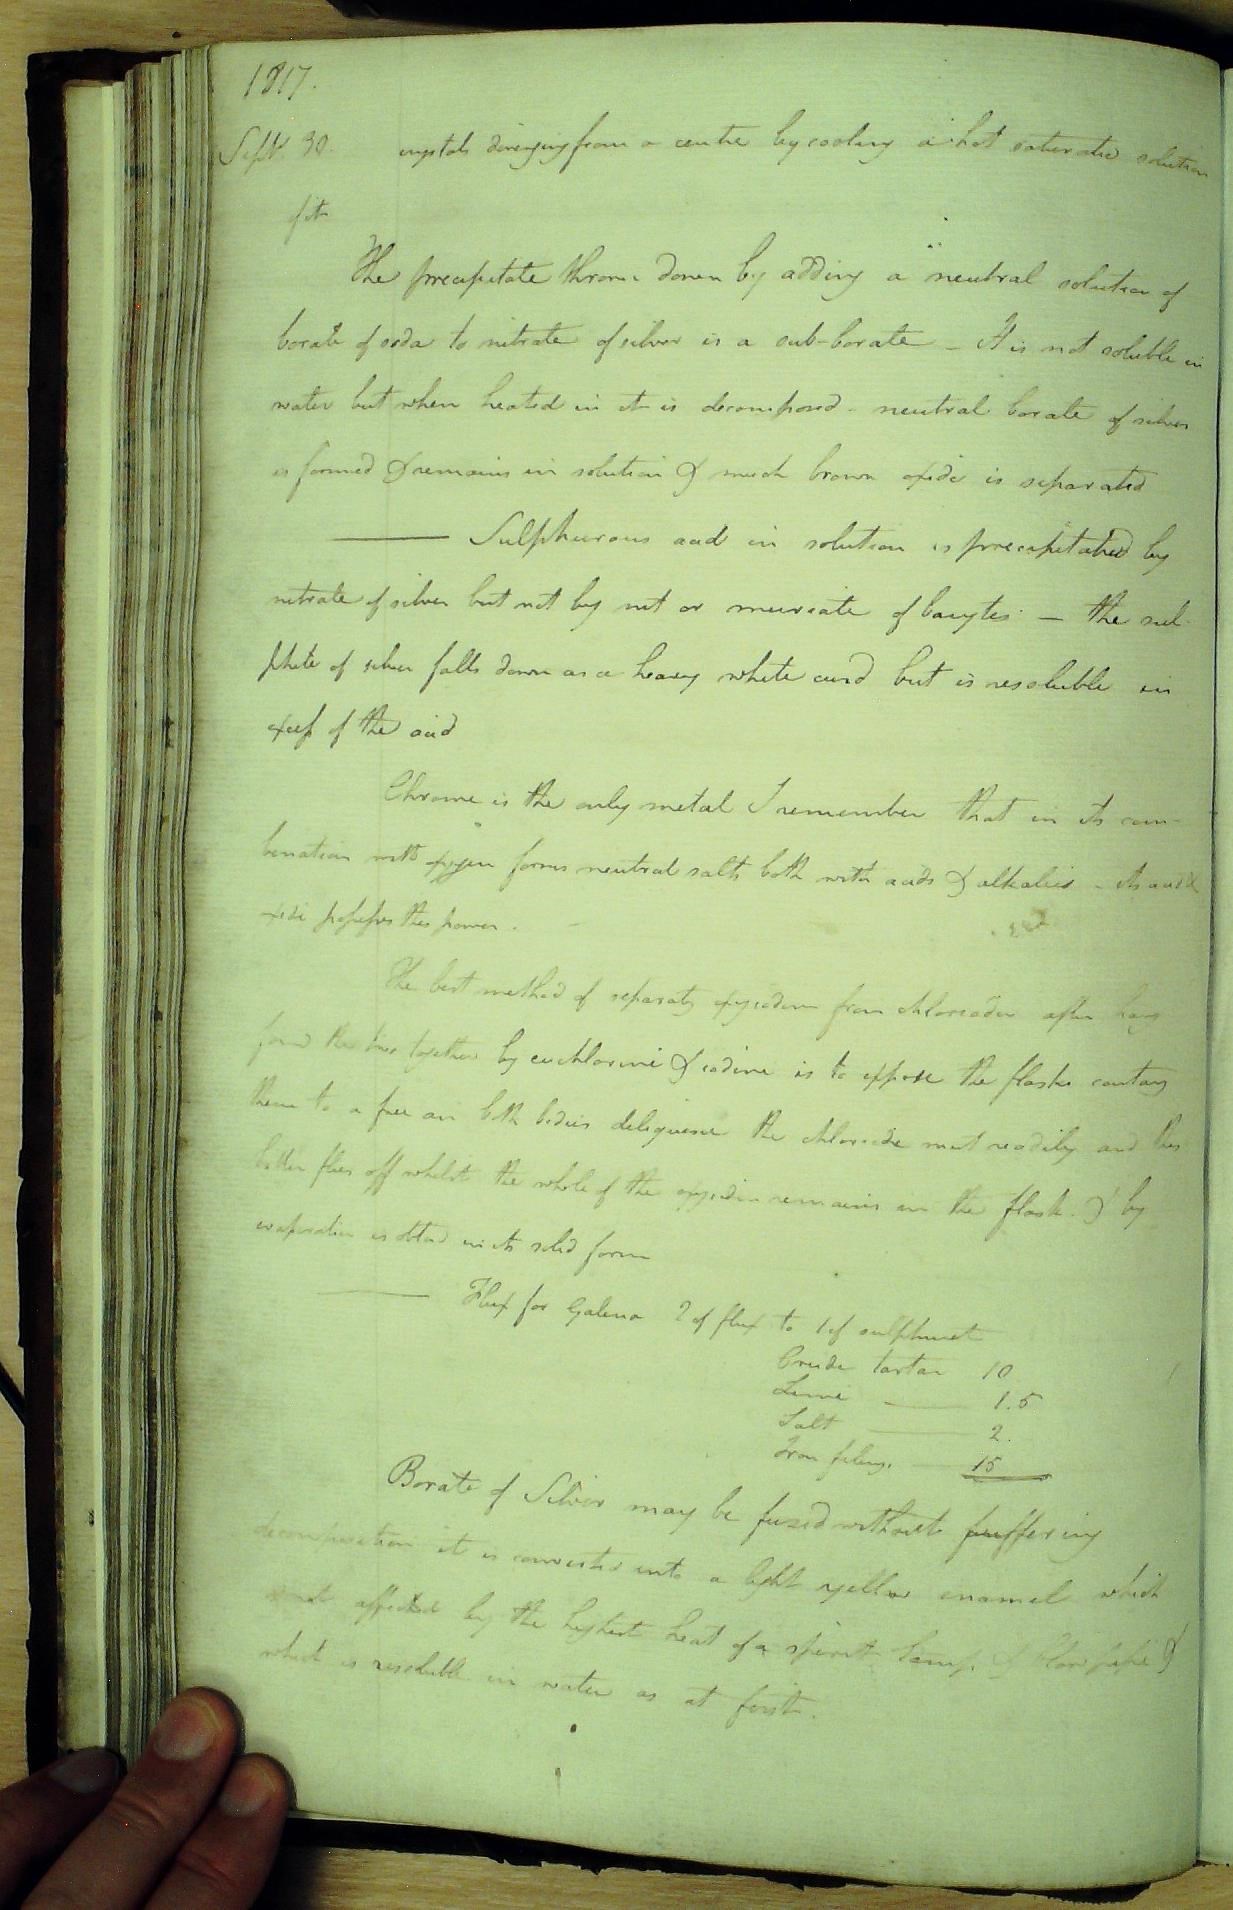 1817.
Sept. 30. crystals diverging from a centre by cooling a hot saturated solution
of it
The precipitate thrown down by adding a neutral solution of
borate of soda to nitrate of silver is a sub-borate - It is not soluble in
water but when heated in it is decomposed - neutral borate of silver
is formed & remains in solution & much brown oxide is separated
Sulphurous acid in solution is precipitated by
nitrate of silver but not by nit or muriate of barytes - the sul-
phite of silver falls down as a heavy white curd but is resoluble in
excess of the acid
Chrome is the only metal I remember that in its com-
bination with oxygen forms neutral salts both with acids & alkalies - its acid &
oxide possesses this power.
The best method of separatg oxyiodine from chloriodine after havg
formd the two together by euchlorine & iodine is to expose the flasks containg
them to a free air both bodies deliquesce the chloriode most readily and this
latter flies off whilst the whole of the oxyiodine remains in the flask. & by
evaporation is obtd in its solid form
Flux for Galena 2 of flux to 1 of sulphuret
Crude tartar 10
Lime 1.5
Salt 2.
Iron filings. 15
Borate of Silver may be fused without suffering
decomposition it is converted into a light yellow enamel which
is not affected by the highest heat of a spirit lamp & blow pipe &
which is resoluble in water as at first.